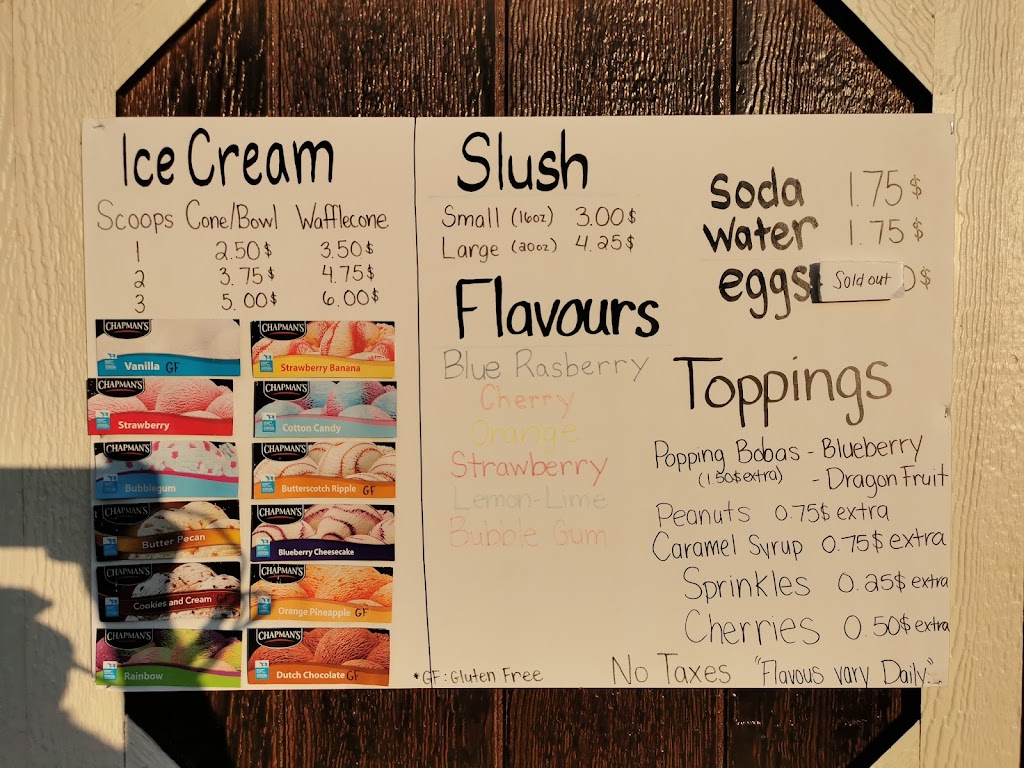 Ice Cream
Scoops Cone/Bowl Wafflecone
1 2.50$ 3.50$
2 3.75$ 4.75$
3 5.00$ 6.00$
CHAPMAN'S
Vanilla GF
CHAPMAN'S
Strawberry Banana
CHAPMAN'S
Strawberry
CHAPMAN'S
Cotton Candy
CHAPMAN'S
Bubblegum
CHAPMAN'S
Butterscotch Ripple GF
CHAPMAN'S
Butter Pecan
CHAPMAN'S
Blueberry Cheesecake
CHAPMAN'S
Cookies and Cream GF
CHAPMAN'S
Orange Pineapple GF
CHAPMAN'S
Rainbow
CHAPMAN'S
Dutch Chocolate GF
Slush
Small (16oz) 3.00$
Large (20oz) 4.25$
Flavours
Blue Rasberry
Cherry
Orange
Strawberry
Lemon-Lime
Bubble Gum
*GF: Gluten Free
Soda 1.75$
Water 1.75$
eggs Sold out $
Toppings
Popping Bobas - Blueberry
(1.50$ extra) - Dragon Fruit
Peanuts 0.75$ extra
Caramel Syrup 0.75$ extra
Sprinkles 0.25$ extra
Cherries 0.50$ extra
No Taxes "Flavous vary Daily."